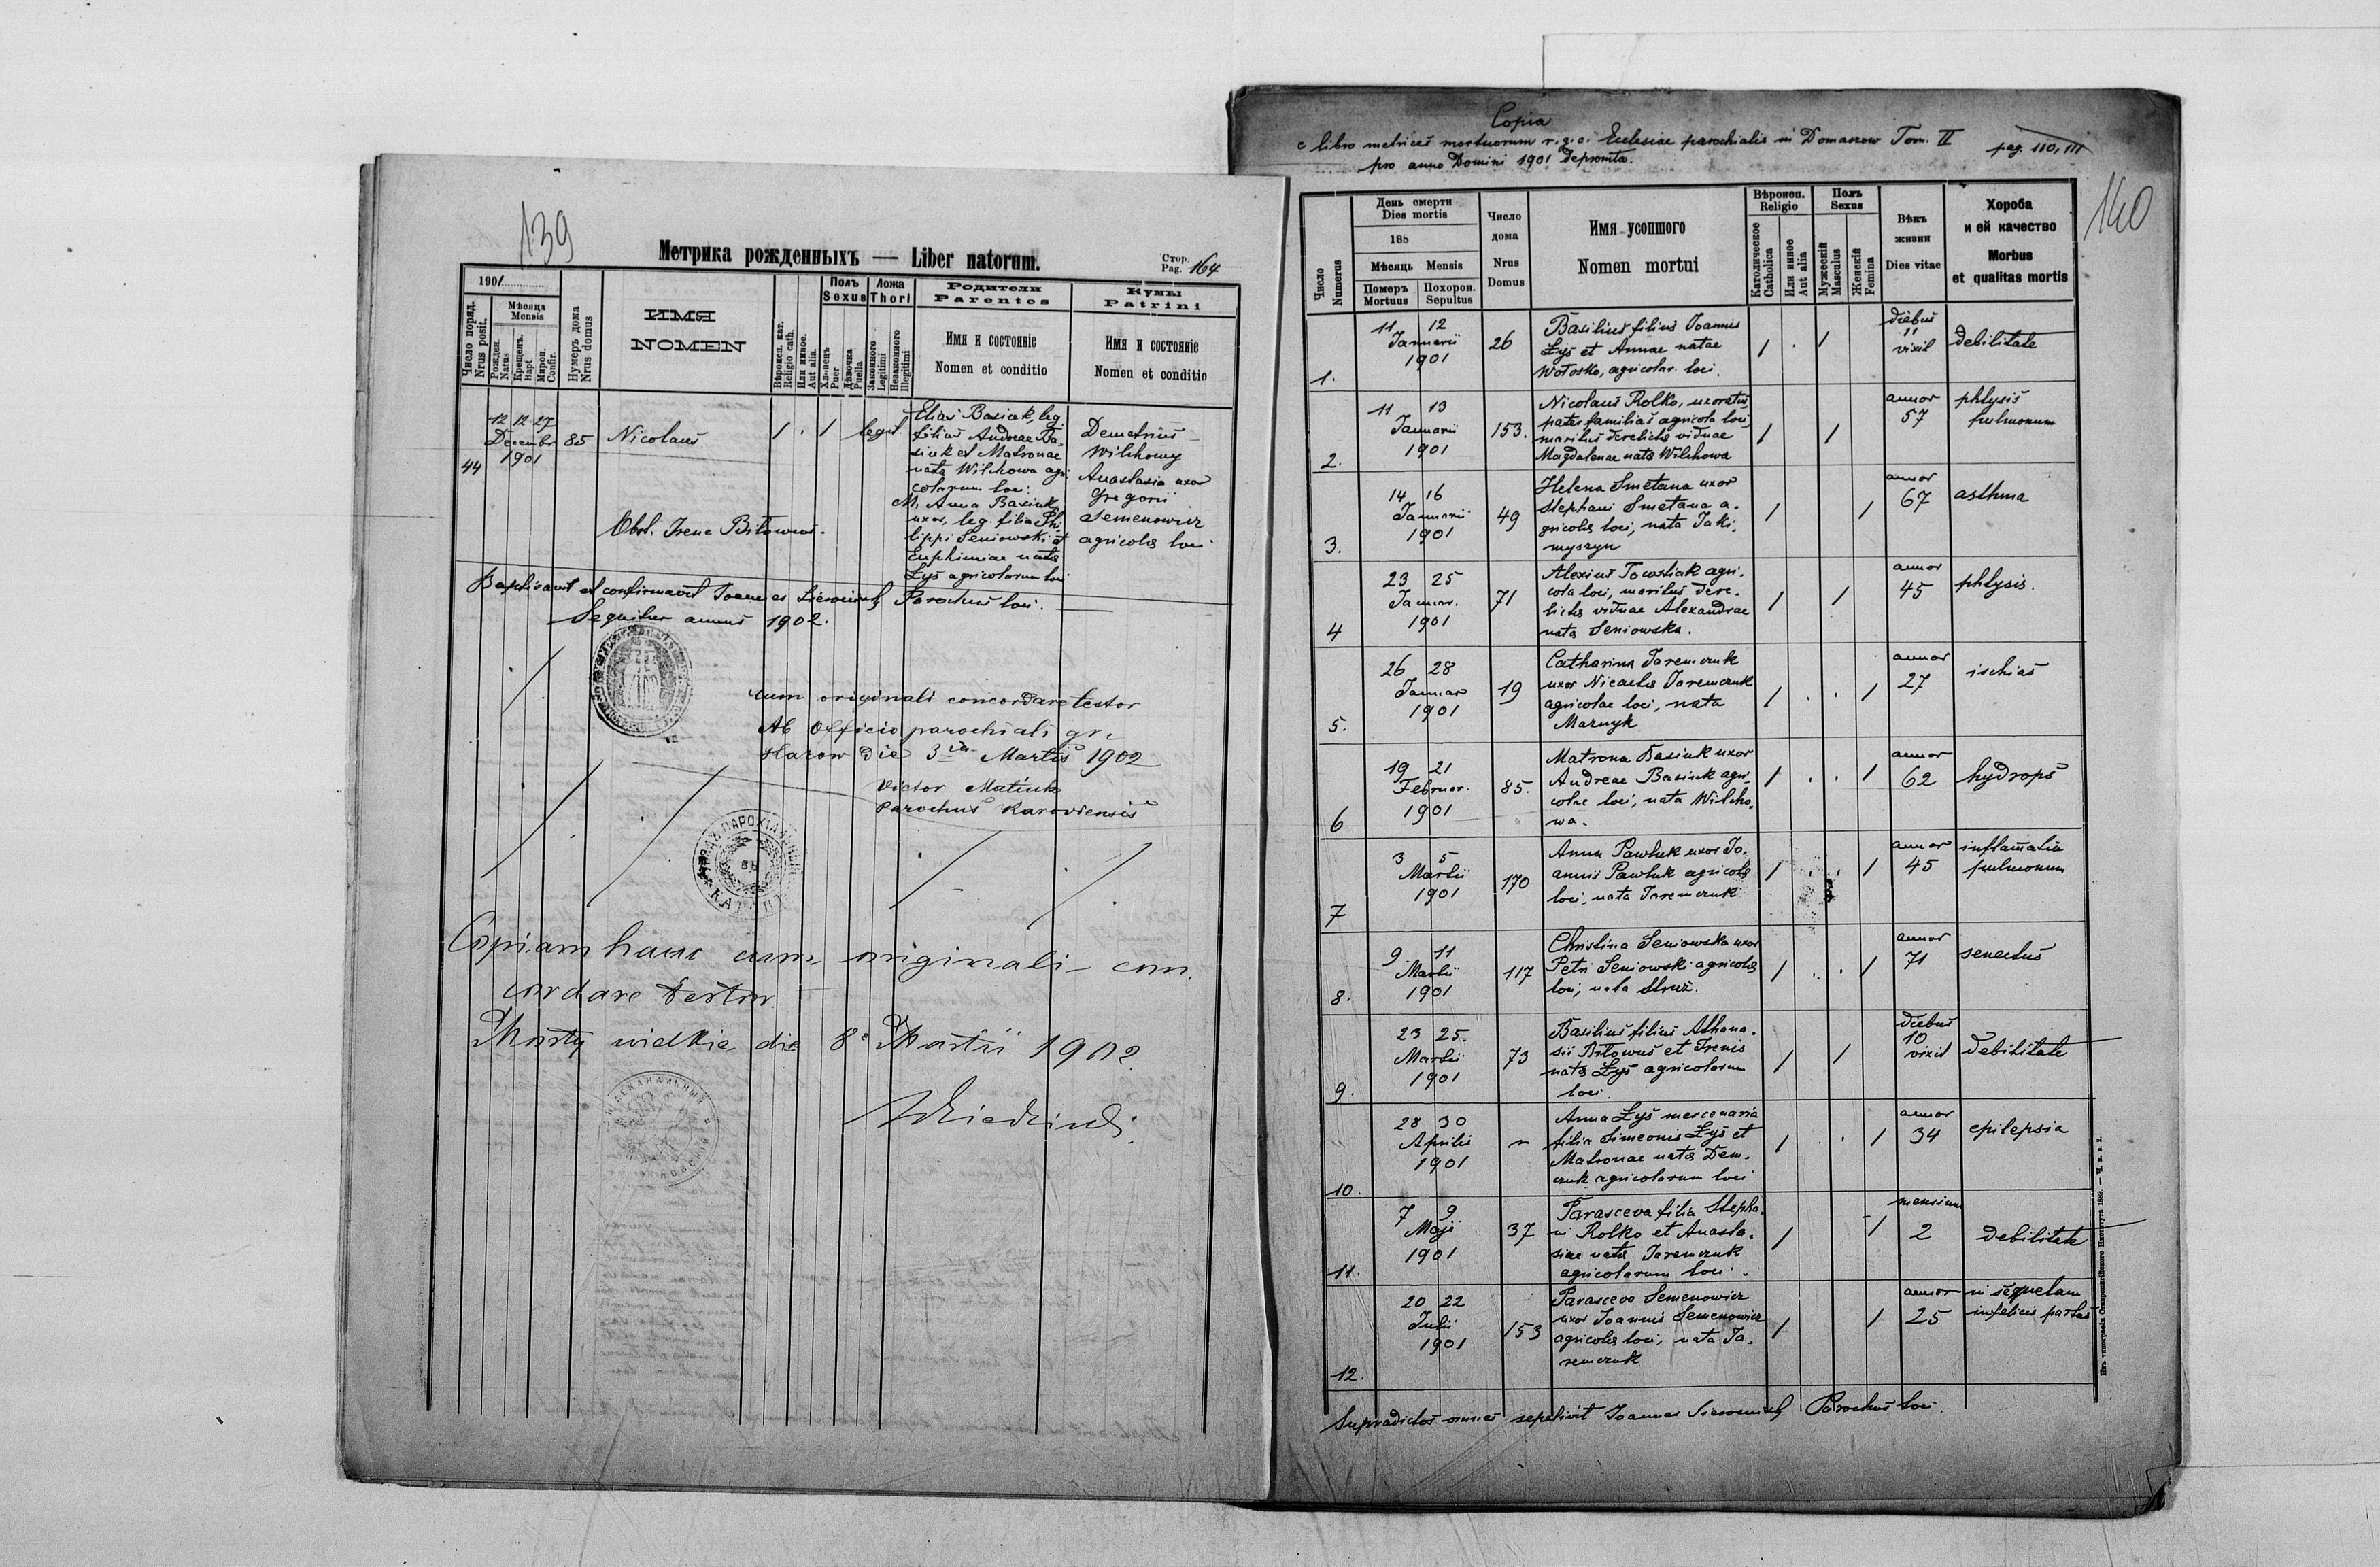 139
Метрика рожденныхъ — Liber natorum.
Стор. Pag. 164
1901
Число поряд. Nrus posit.
Мѣсяца Mensis
Рожден. Natus
Крещенъ. Bapt.
Мѵроп. Confir.
Нумеръ дома Nrus domus
ИМЯ
NOMEN
Вѣроисп. кат. Religio cath.
Или инное. Aut alia.
Полъ Sexus
Хлопецъ Puer
Дѣвочка Puella
Ложа Thori
Законного Legitimi
Незаконного Illegitimi
Родители Parentes
Имя и состояніе
Nomen et conditio
Кумы Patrini
Имя и состояніе
Nomen et conditio
44
12 12 27
Decembr.
1901
85
Nicolaus
1 . 1 legit.
Elias Basiuk, leg.
filius Andreae Ba-
siuk et Matronae
nata Wilchowa agri
colarum loci.
M. Anna Basiuk
uxor, leg. filia Phi
lippi Seniowski et
Euphimiae nata
Łyś agricolarum loci
Demetrius
Wilchowy
Anastasia uxor
Gregorii
Semenowicz
agricola loci
Obst. Irene Biłowus.
Baptisavit et confirmavit Joannes Parochus loci.
Sequitur annus 1902.
cum originali concordare testor
Ab Officio parochiali gr. c.
Karow die 3 Martis 1902
Victor Matiuk
Parochus Karoviensis
Copiam hanc cum originali con-
cordare testor.
Mosty wielkie die 8 Martii 1902
Copia
e libro metrices mortuorum r. g. c. Ecclesiae parochialis in Domaszow Tom. II pag. 110, 111
pro anno Domini 1901 depromta.
140
Число Numerus
День смерти Dies mortis
188
Мѣсяць Mensis
Померъ Mortuus
Похорон. Sepultus
Число дома
Nrus Domus
Имя усопшого
Nomen mortui
Вѣроисп. Religio
Католическое Catholica
Или инное Aut alia
Полъ Sexus
Мужескій Masculus
Женскій Femina
Вѣкъ жизни
Dies vitae
Хороба
и ей качество
Morbus
et qualitas mortis
1.
11 12
Januarii
1901
26
Basilius filius Joannis
Łyś et Annae natae
Wołosko, agricolar. loci.
1 . 1
diebus
11
vixit
debilitate
2.
11 13
Januarii
1901
153.
Nicolaus Rolko, uxoratus,
pater familias agricola loci,
maritus derelicta viduae
Magdalenae nata Wilchowa
1 1
annor
57
phtysis
pulmonum
3.
14 16
Januarii
1901
49
Helena Smetana uxor
Stephani Smetana a-
gricola loci, nata Jaki-
myszyn
1 1
annor
67
asthma
4
23 25
Januar.
1901
71
Alexius Towstiak agri-
cola loci, maritus dere-
licta viduae Alexandrae
nata Seniowska.
1 1
annor
45
phtysis.
5.
26 28
Januar
1901
19
Catharina Jaremczuk
uxor Jaremczuk
agricolae loci, nata
Maznyk
1 . . 1
annor
27
ischias
6
19 21
Februar.
1901
85.
Matrona Basiuk uxor
Andreae Basiuk agri-
colae loci, nata Wilcho-
wa.
1 . . 1
annor
62
hydrops
7
3 5
Martii
1901
170
Anna Pawluk uxor Jo-
annis Pawluk agricola
loci, nata Jaremczuk
1 . . 1
annor
45
inflamatio
pulmonum
8.
9. 11
Martii
1901
117
Christina Seniowska uxor
Petri Seniowski agricola
loci, nata Struś.
1 . . 1
annor
71
senectus
9.
23 25.
Martii
1901
73
Basilius filius Athana-
sii Biłowus et Irenis
nata Łyś agricolarum
loci.
1 1
diebus
10
vixit
debilitate
10.
28 30
Aprilis
1901
Anna Łyś mercenaria
filia Simeonis Łyś et
Matronae nata Dem-
czuk agricolarum loci
1 . 1
annor
34
epilepsia
11.
7 9
Maji
1901
37
Parasceva filia Stepha-
ni Rolko et Anasta-
siae nata Jaremczuk
agricolarum loci.
1 1
mensium
2
debilitate
12.
20 22
Julii
1901
153
Parasceva Semenowicz
uxor Joannis Semenowicz
agricola loci, nata Ja-
remczuk
1 1
annor
25
in sequelam
infelicis partus
Supradictos omnes sepelivit Joannes Parochus loci.
Изъ типографіи Ставропигійского Института 1889. — Ч. в. з. 2.